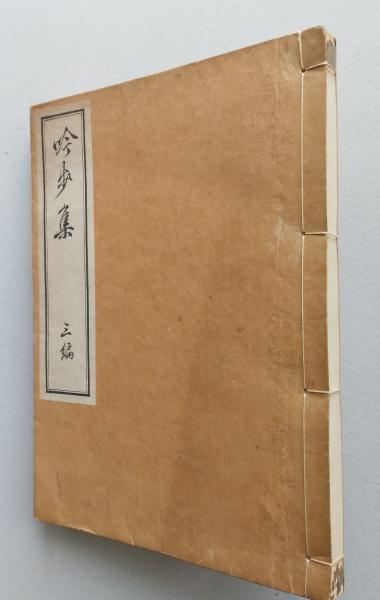 吟歩集
三編